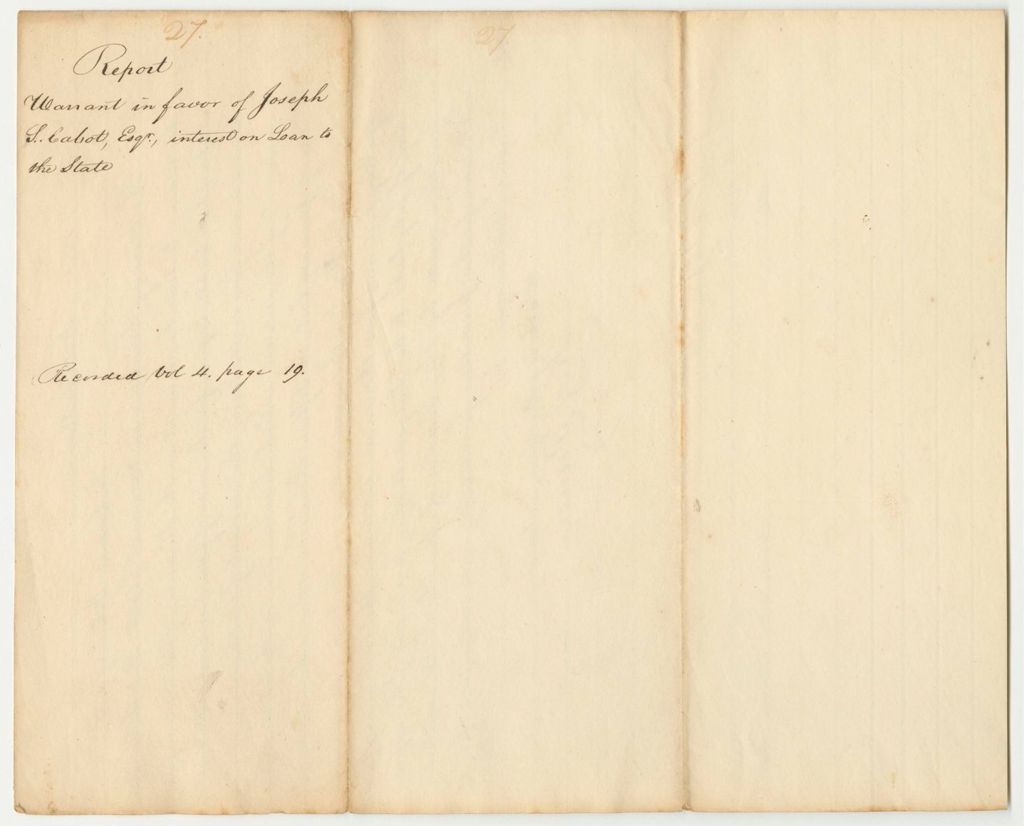 27.
27
Report
Warrant in favor of Joseph
S. Cabot, Esqr., interest on Loan to
the State
Recorded Vol 4. page 19.